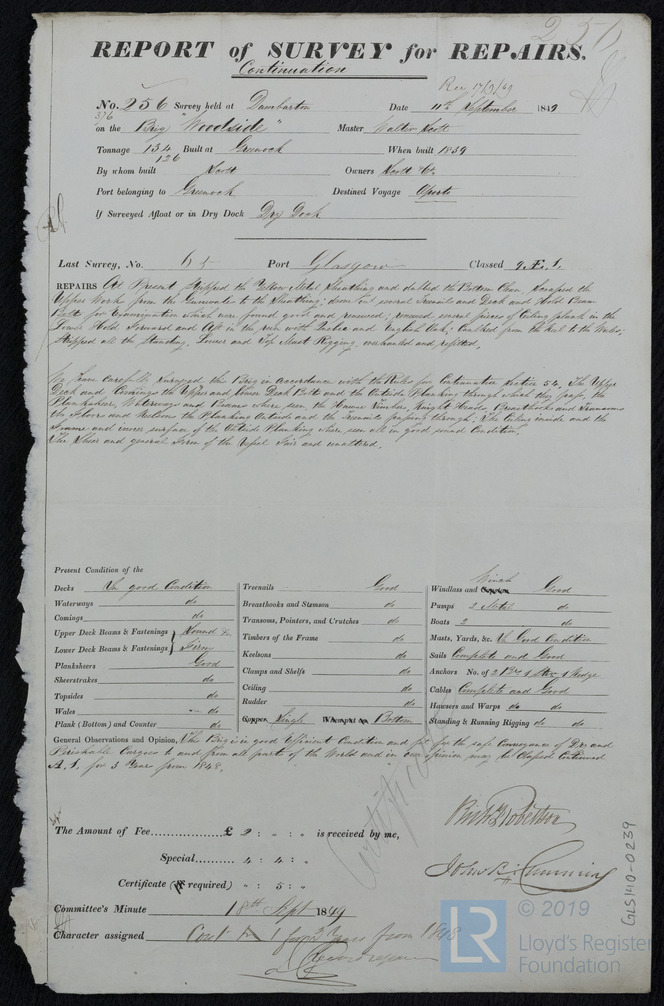 256
REPORT of SURVEY for REPAIRS.
Continuation
Rec 17/9/49
No. 256 Survey held at Dumbarton Date 11th September 1849
376
on the Brig "Woodside" Master Walter Scott
Tonnage 134 Built at Greenock When built 1839
126
By whom built Scott Owners Scott & Co.
Port belonging to Greenock Destined Voyage Oporto
If Surveyed Afloat or in Dry Dock Dry Dock
Last Survey, No. 65 Port Glasgow Classed 9 Æ. 1.
REPAIRS At Present Stripped the Yellow Metal Sheathing and dubbed the Bottom Clean, Scraped the
Upper Work from the Gunwales to the Sheathing; drove out several Treenails and Deck and Hold Beam
Bolts for Examination which were found good and renewed; renewed several pieces of Ceiling plank in the
Lower Hold Forward and Aft in the run with Quebec and English Oak; Caulked from the Keel to the Wales,
Stripped all the Standing, Lower and Top Mast Rigging, overhauled and refitted.
We have carefully Surveyed the Brig in accordance with the Rules for Continuation Section 54. The Upper
Deck and Comings the Upper and Lower Deck Bolts and the Outside Planking through which they pass, the
Planksheers, Waterways and Beams where seen the Hawse Timbers, Knight Heads, Breasthooks and Transoms
the Floors and the Planking Outside and the Treenails passing through; The Ceiling inside and the
Frame and inner surface of the Outside Planking where seen all in good sound Condition.
The Sheer and general Form of the Vessel Fair and unaltered.
Present Condition of the
Decks In good Condition
Waterways do
Comings do
Upper Deck Beams & Fastenings Sound &
Lower Deck Beams & Fastenings Firm
Planksheers Good
Sheerstrakes do
Topsides do
Wales do
Plank (Bottom) and Counter do
Treenails Good
Breasthooks and Stemson do
Transoms, Pointers, and Crutches do
Timbers of the Frame do
Keelsons do
Clamps and Shelfs do
Ceiling do
Rudder do
Copper Single Bottom
Winch
Windlass and Capstan Good
Pumps 2 Metal do
Boats 2 do
Masts, Yards, &c. In Good Condition
Sails Complete and Good
Anchors No. of 2 Br 1 Str. 1 Kedge
Cables Complete and Good
Hawsers and Warps do do
Standing & Running Rigging do do
General Observations and Opinion, This Brig is in good Efficient Condition and fit for the safe Conveyance of Dry and
Perishable Cargoes to and from all parts of the World and in our opinion may be Classed Continued
A. 1. for 3 Years from 1848.
Certificate
The Amount of Fee £ 2 : " : " is received by me,
Special 4 : 4 : "
Certificate (if required) " : 5 : "
Robt Robertson
John R. Cumming
Committee's Minute 18th Sept 1849
Character assigned Cont A 1 for 3 Years from 1848
GLS140-0239
LR
© 2019
Lloyd's Register
Foundation